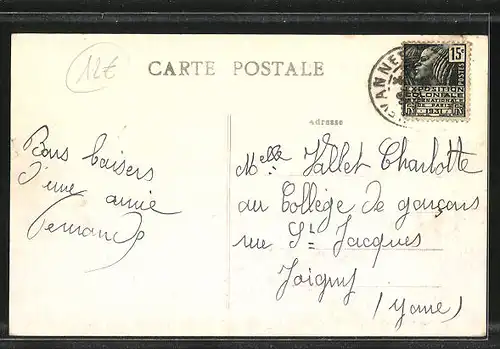 12€
CARTE POSTALE
15c
POSTES
EXPOSITION
COLONIALE
INTERNATIONALE
DE PARIS
1931
Adresse
Bons baisers
d'une amie
Fernande
Melle Vallet Charlotte
au Collège de garçons
rue St Jacques
Joigny
(Yonne)